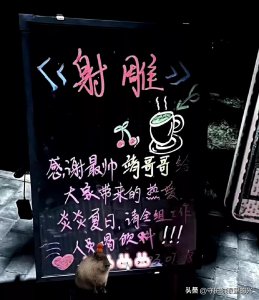 《射雕》
感谢最帅 靖哥哥 给
大家带来的热爱
炎炎夏日,请全组工作
人员喝饮料!!!
头条